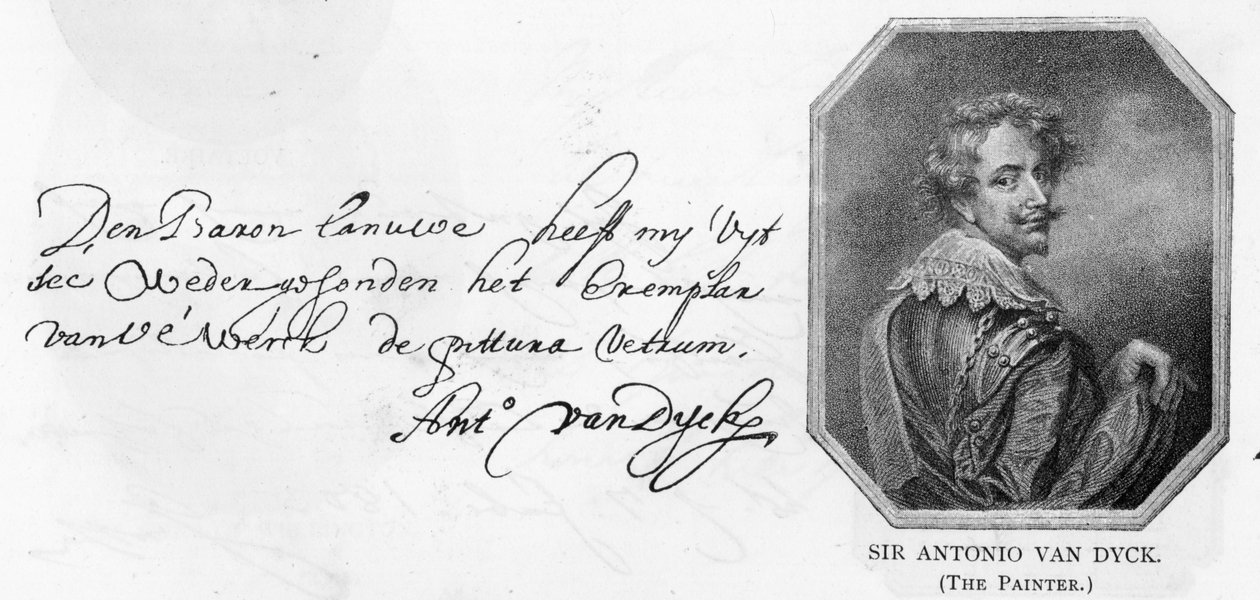 Den Baron Canuwe heeft mij Vyt
see Weder gesonden het Exemplar
van Vé Werck de pittura Vetrum.
Ant° van Dyck
SIR ANTONIO VAN DYCK.
(THE PAINTER.)